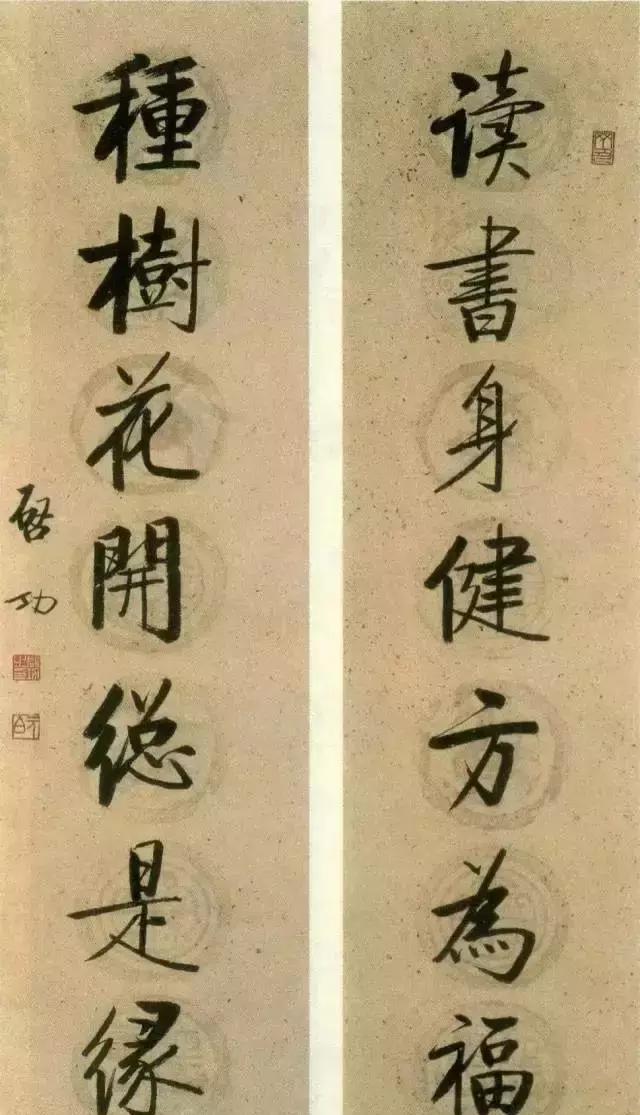 读书身健方为福
種樹花開総是緣
啓功